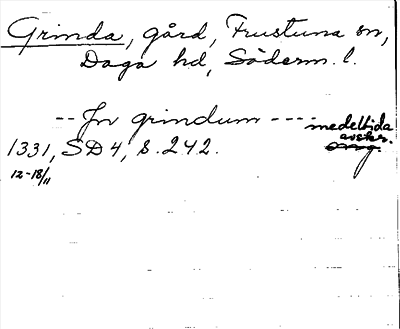 Grinda, gård, Frustuna sn,
Daga hd, Söderm. l.
-- In grindum ---- medeltida
avskr.
1331, SD 4, s. 242.
12-18/11